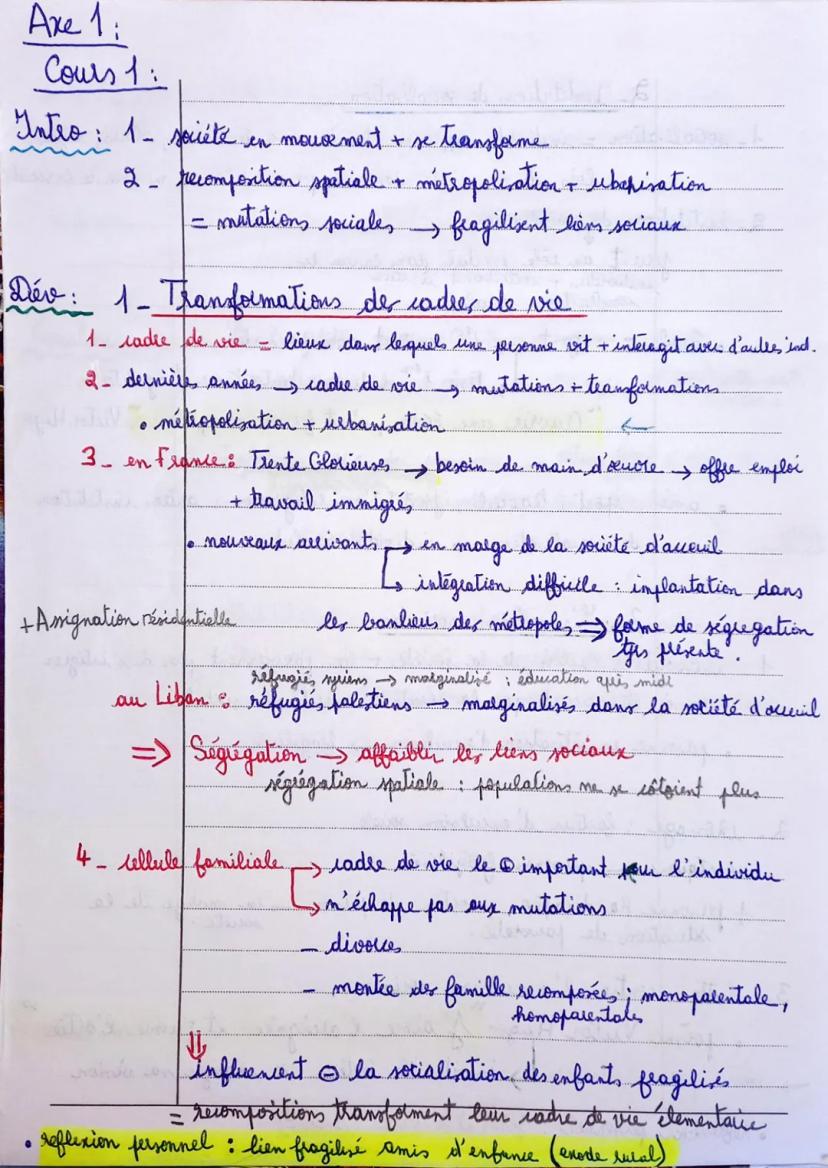 Axe 1:
Cours 1:
Intro : 1 - société en mouvement + se transforme
2 - recomposition spatiale + métropolisation + urbanisation
= mutations sociales → fragilisent liens sociaux
Dév: 1 - Transformations des cadres de vie
1 - cadre de vie = lieux dans lesquels une personne vit + interagit avec d'autres ind.
2 - dernières années → cadre de vie → mutations + transformations
• métropolisation + urbanisation ←
3 - en France : Trente Glorieuses → besoin de main d'œuvre → offre emploi
+ travail immigrés
• nouveaux arrivants → en marge de la société d'accueil
→ intégration difficile : implantation dans
+ Assignation résidentielle les banlieu des métropoles ⇒ forme de ségrégation
très présente.
réfugiés syriens → marginalisé : éducation après midi
au Liban : réfugiés palestiens → marginalisés dans la société d'accueil
⇒ Ségrégation → affaiblir les liens sociaux
ségrégation spatiale : populations ne se côtoient plus
4 - cellule familiale → cadre de vie le ⊕ important pour l'individu
→ n'échappe pas aux mutations
- divorces
- montée des famille recomposées ; monoparentale,
homoparentales
⇓
influencent ⊖ la socialisation des enfants fragilisés
= recompositions transforment leur cadre de vie élementaire
• reflexion personnel : lien fragilisé amis d'enfance (exode rural)